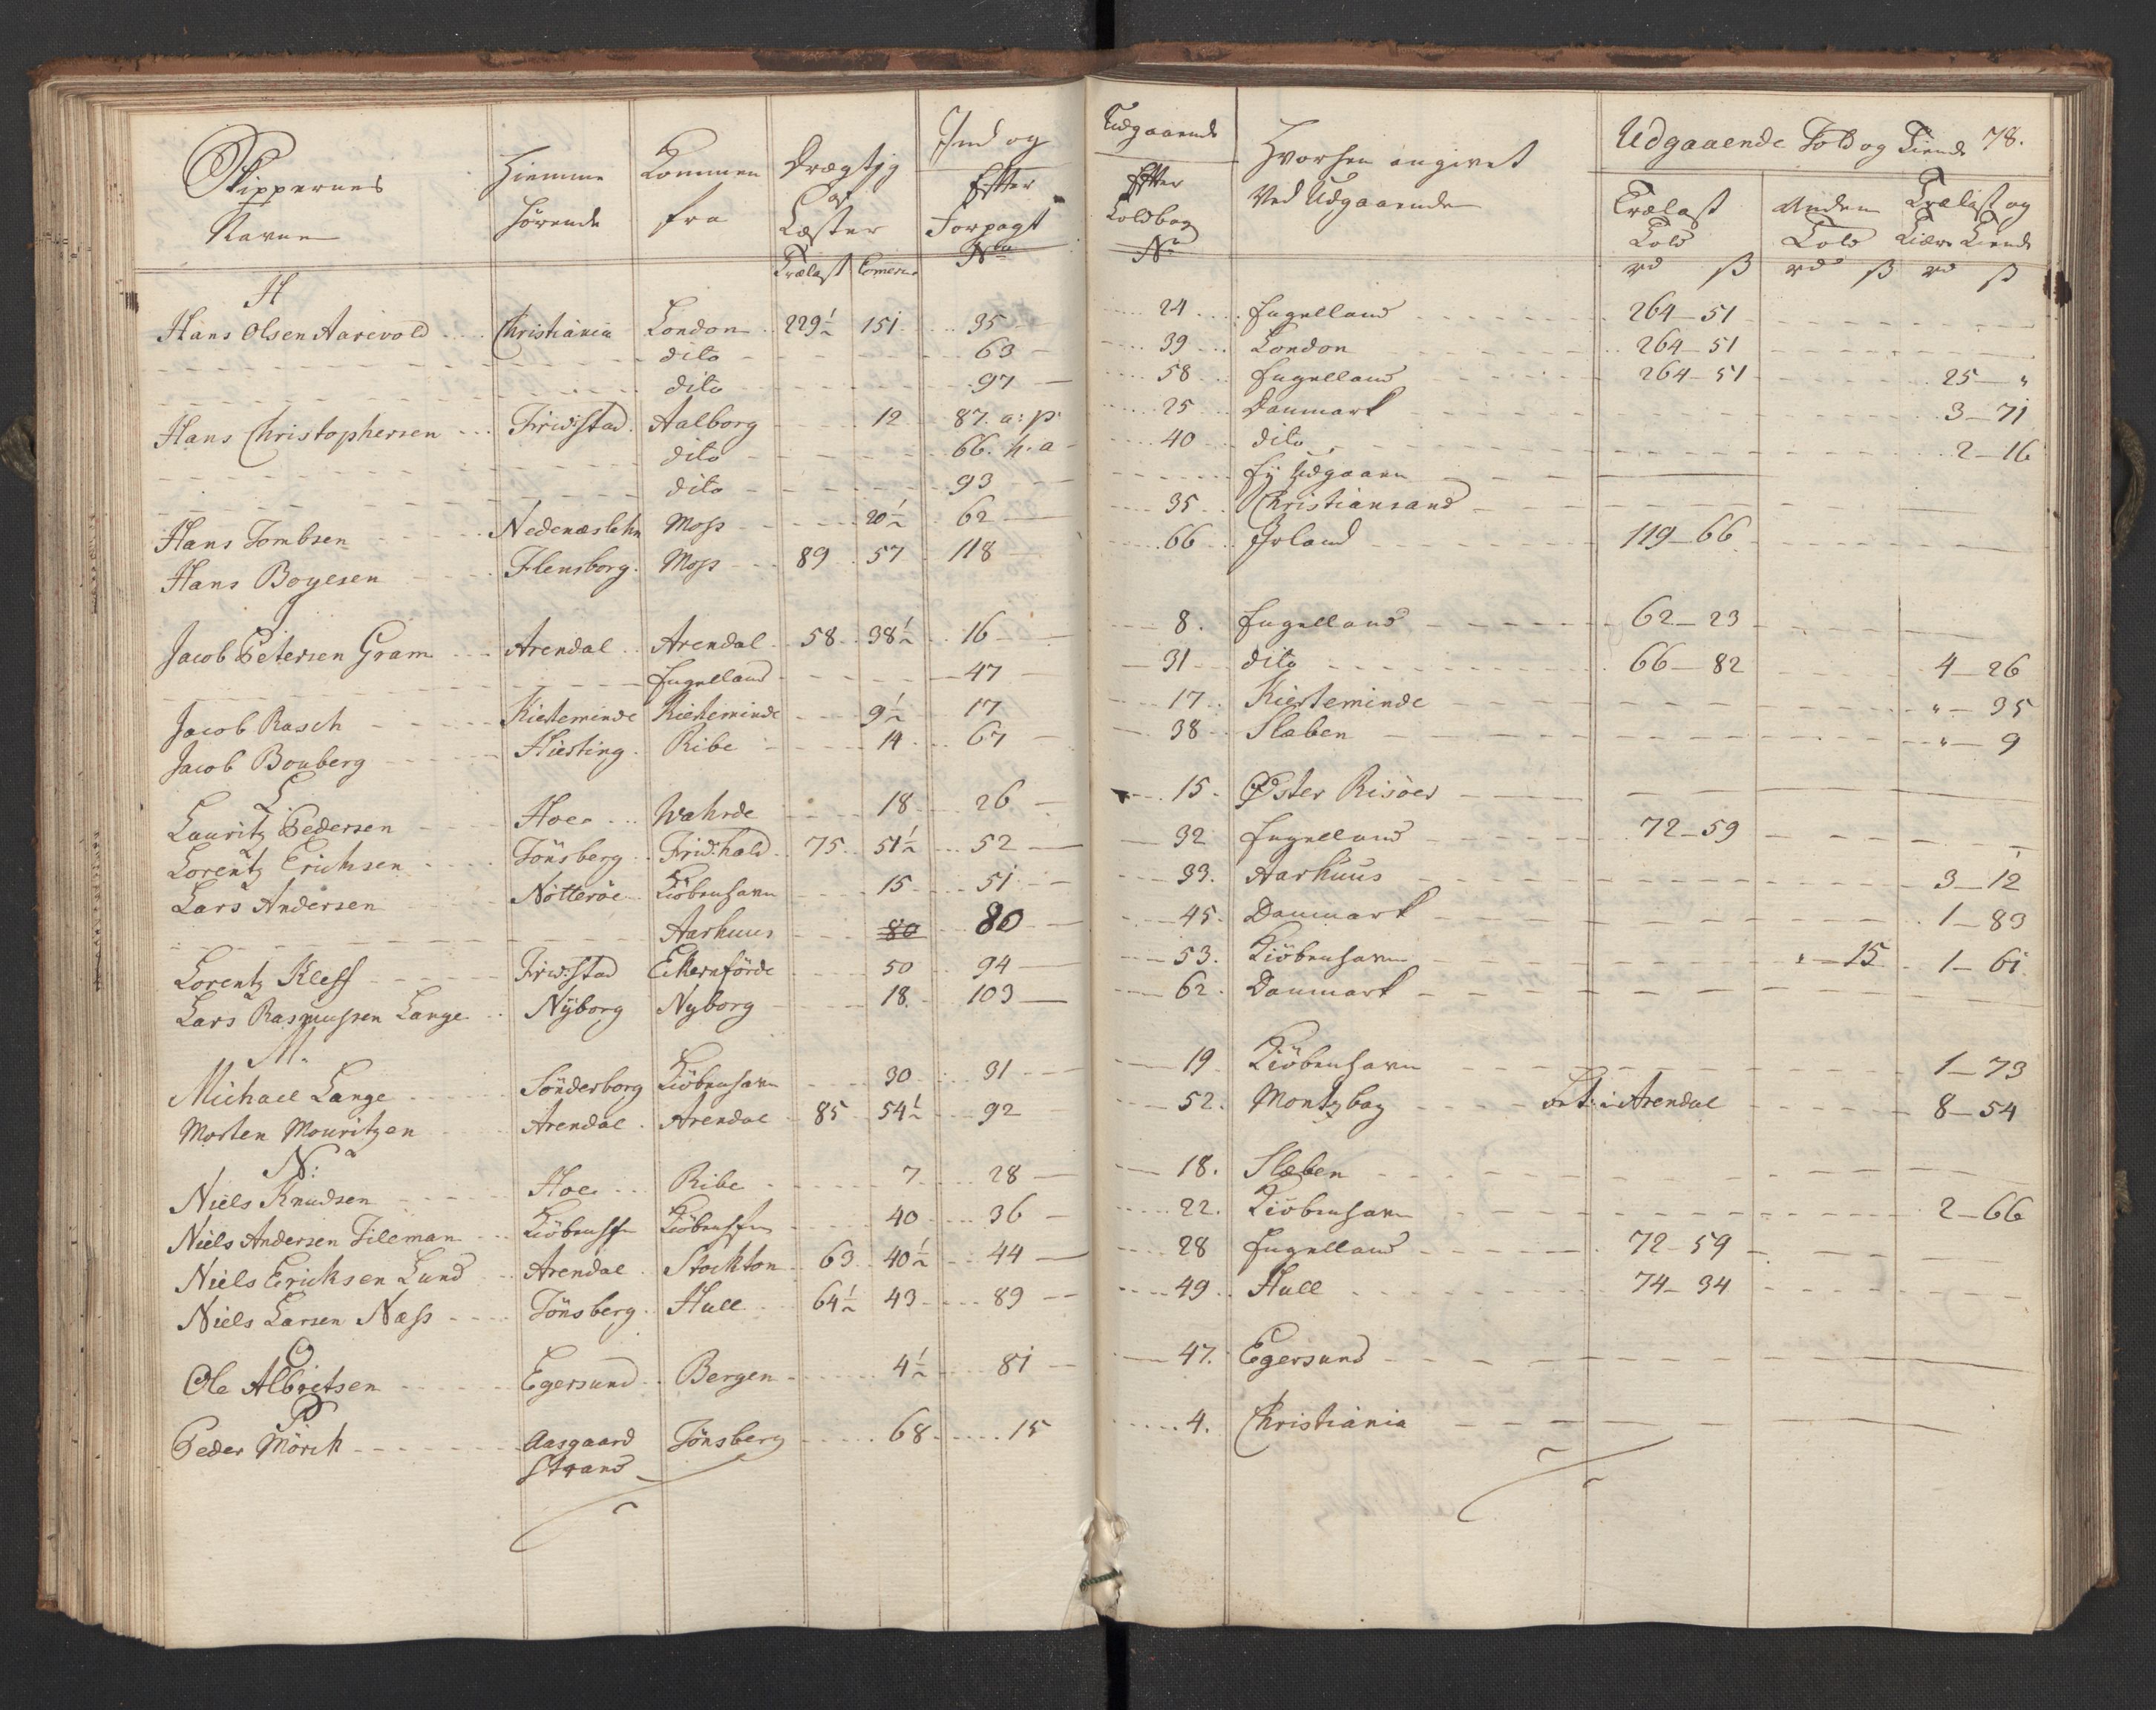 Skippernes Navne | Hiemme hørende | Kommen fra | Drægtig af Læster | Ind og Efter Forpagt No | Udgaaende Efter Toldbog No | Hvorhen angivet Ved Udgaaende | Udgaaende Told og Tiende 78.
Trælast | Comerce | Trælast Told | Anden Told | Trælast og Tiære Tiende
rd ß | rd ß | rd ß
H
Hans Olsen Aarevold | Christiania | London | 229½ | 151 | 35 | 24 | Engelland | 264–51
dito | 63 | 39 | London | 264–51
dito | 97 | 58 | Engelland | 264–51 | 25–"
Hans Christophersen | Fridstad | Aalborg | 12 | 87. a: p | 25 | Danmark | 3–71
dito | 66. h. a | 40 | dito | 2–16
dito | 93 | Ej Udgaaen
Hans Tombsen | Nedenæslehn | Moss | 20½ | 62 | 35 | Christiansand
Hans Boyesen | Flensborg | Moss | 89 | 57 | 118 | 66 | Irland | 119–66
Jacob Petersen Gram | Arendal | Arendal | 58 | 38½ | 16 | 8. | Engelland | 62–23
Engelland | 47 | 31 | dito | 66–82 | 4–26
Jacob Rasch | Kierteminde | Kierteminde | 9½ | 17 | 17 | Kierteminde | "–35
Jacob Bouberg | Hierting | Ribe | 14 | 67 | 38 | Slaben | "–9
L
Lauritz Pedersen | Hoe | Wahrde | 18 | 26 | 15. | Øster Risöer
Lorentz Erichsen | Tönsberg | Fridhald | 75 | 51½ | 52 | 32 | Engelland | 72–59
Lars Andersen | Nötteröe | Kiöbenhavn | 15 | 51 | 33. | Aarhuus | 3–12
Aarhuus | 80 | 80 | 45. | Danmark | 1–83
Lorentz Kleff | Fridstad | Eikernförde | 50 | 94 | 53. | Kiöbenhavn | "–15 | 1–61
Lars Rasmussen Lange | Nÿborg | Nyborg | 18 | 103 | 62. | Danmark
M.
Michael Lange | Sönderborg | Kiöbenhavn | 30 | 31 | 19 | Kiöbenhavn | 1–73
Morten Mouritzen | Arendal | Arendal | 85 | 54½ | 92 | 52. | Montzbay | bet: i Arendal | 8–54
N:
Niels Knudsen | Hoe | Ribe | 7 | 28 | 18. | Slæben
Niels Andersen Tileman | Kiöbenhfn | Kiöbenhfn | 40 | 36 | 22. | Kiöbenhavn | 2–66
Niels Ericksen Lund | Arendal | Stockton | 63 | 40½ | 44 | 28 | Engelland | 72–59
Niels Larsen Næss | Tönsberg | Hull | 64½ | 43 | 89 | 49. | Hull | 74–34
O
Ole Albretsen | Egersund | Bergen | 4½ | 81 | 47. | Egersund
P
Peder Mörck | Aasgaard Strand | Tönsberg | 68 | 15 | 4. | Christiania